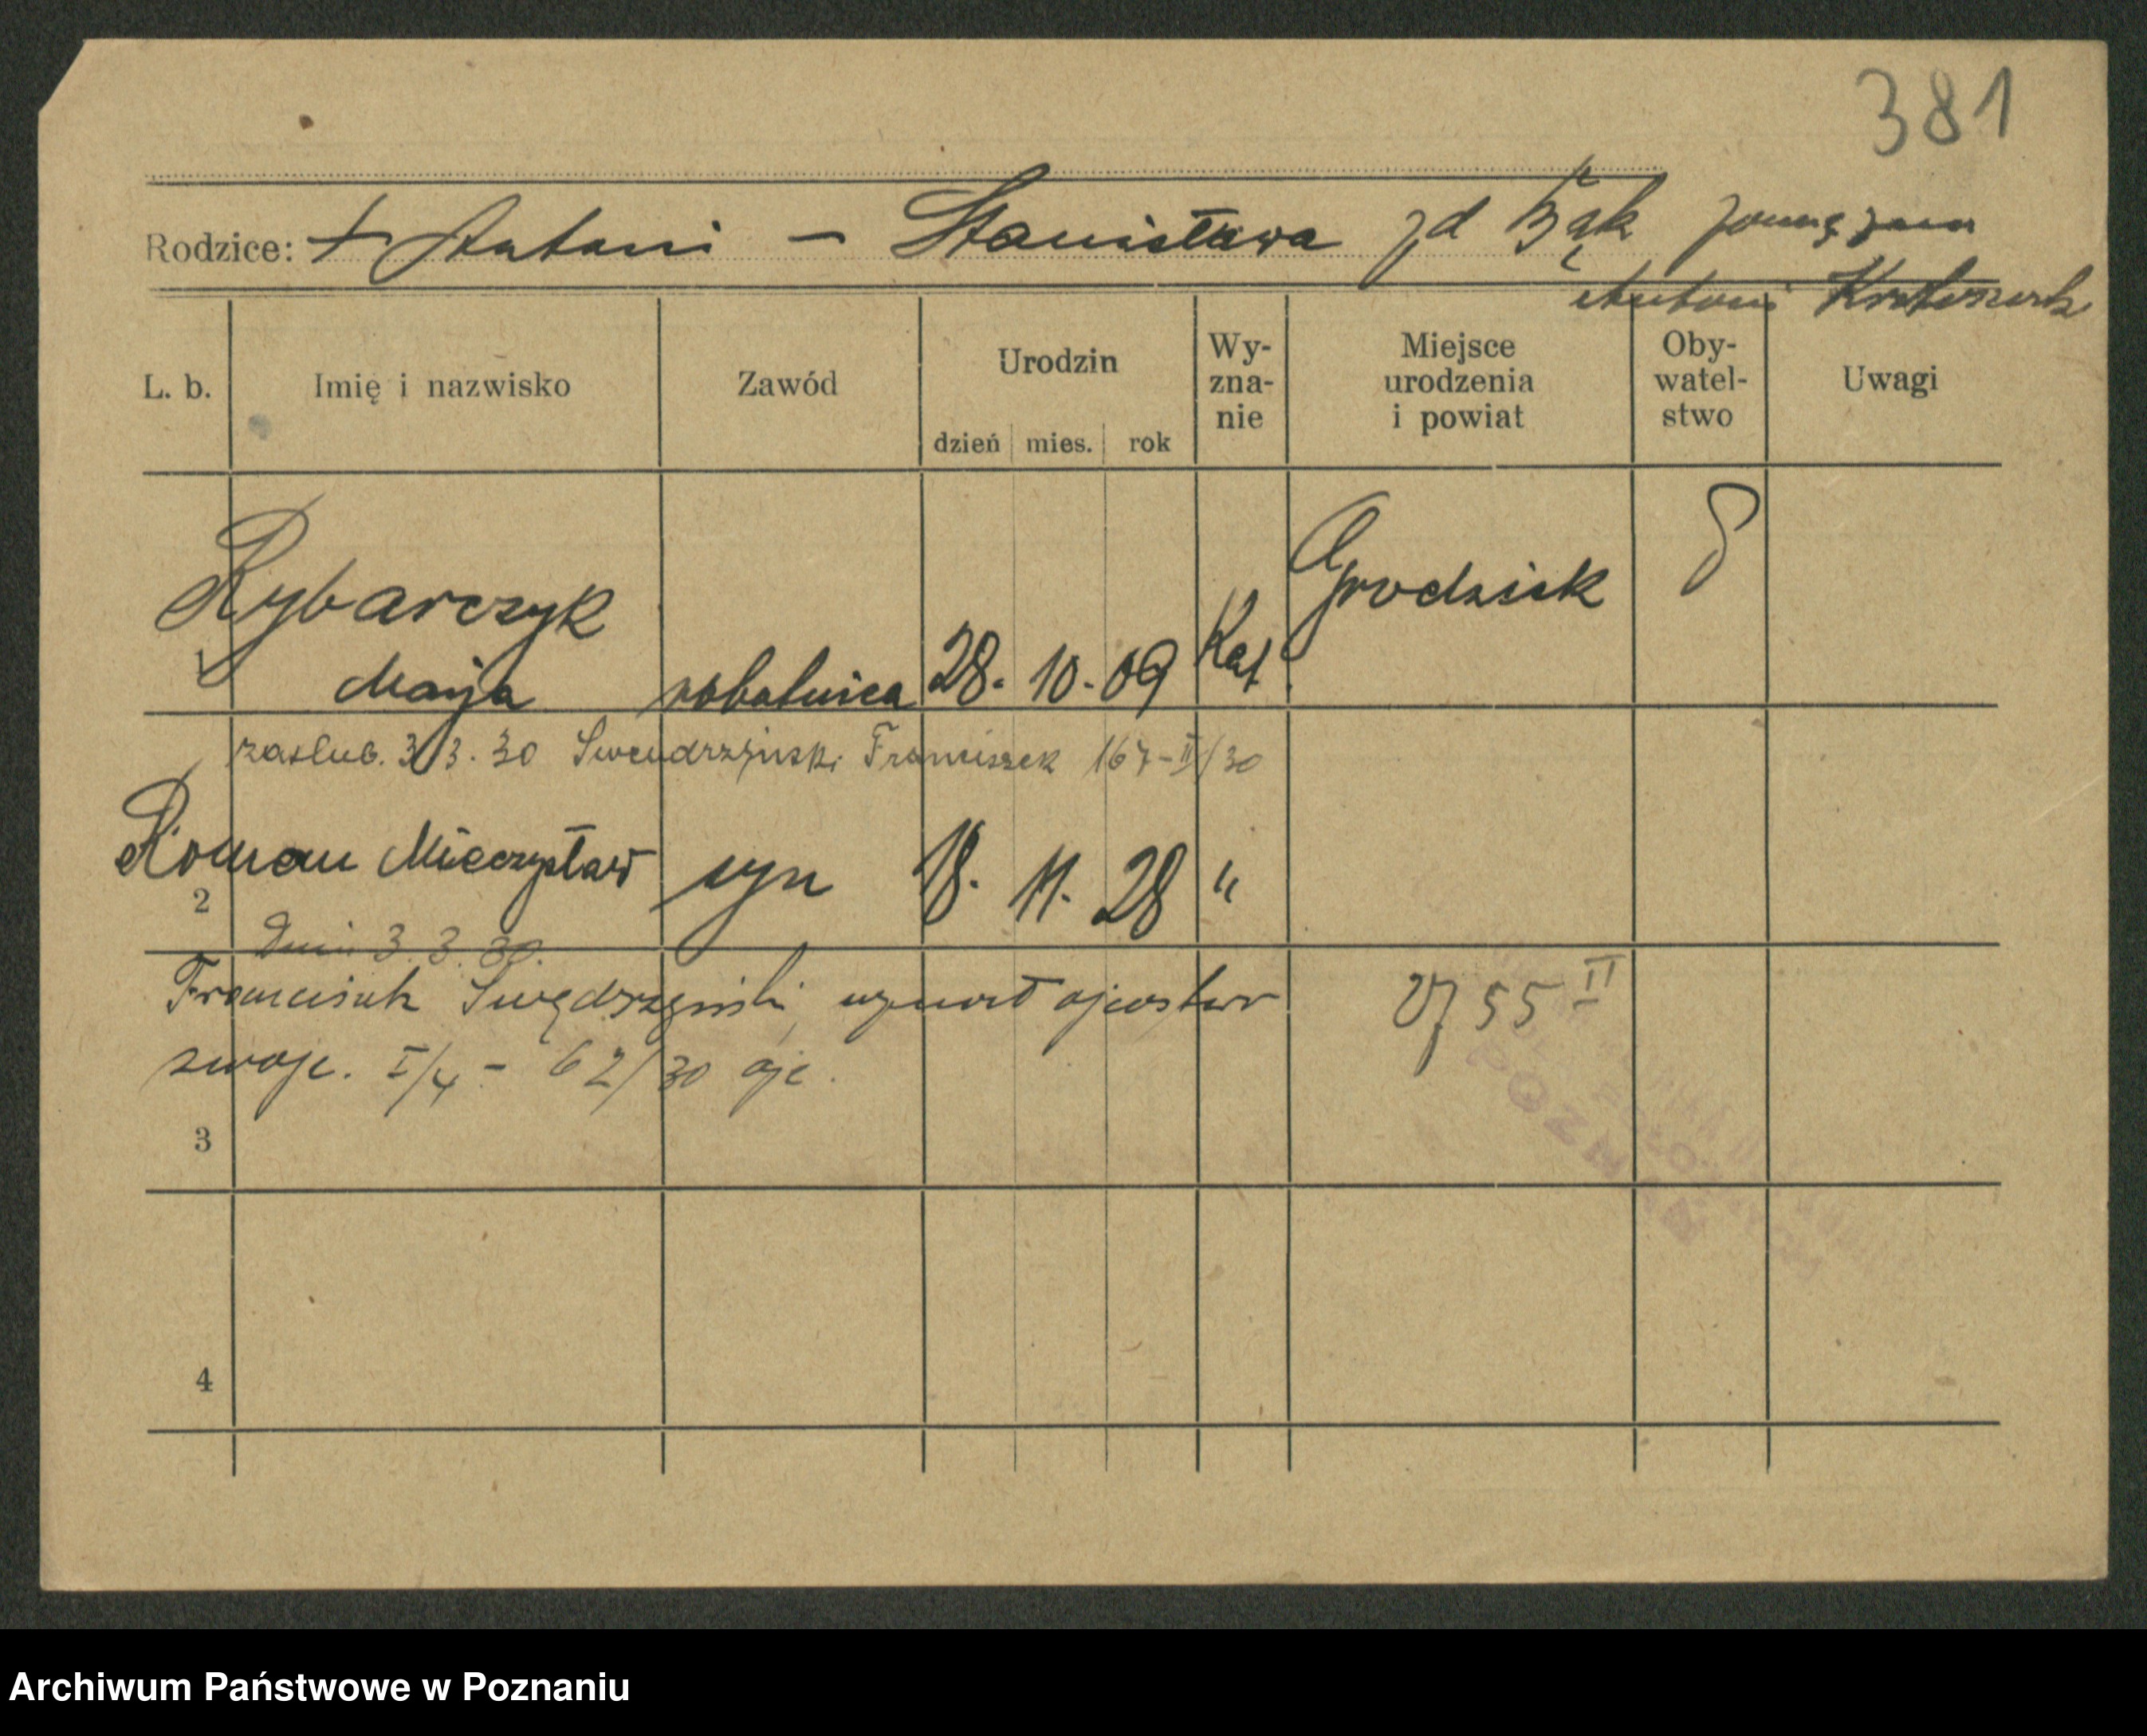 381
Rodzice: + Antoni - Stanisława zd Bąk
Antoni
L. b. Imię i nazwisko Zawód Urodzin dzień mies. rok Wy-zna-nie Miejsce urodzenia i powiat Oby-watel-stwo Uwagi
Rybarczyk Grodzisk
1 Marja robotnica 28. 10. 09 Kat.
zaslub. 3/3. 30 Swendrzynski Franciszek 167-II/30
2 Roman Mieczysław syn 18. 11. 28 "
Dnia 3. 3. 30.
Franciszek Swędrzyński uznał ojcostwo 55 II
swoje. I/4 - 62/30 ojc.
POZNAŃ
3
4
Archiwum Państwowe w Poznaniu